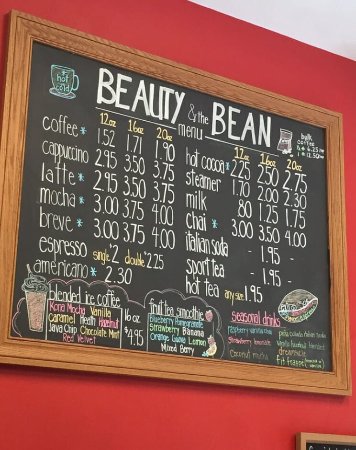 hot
cold
BEAUTY & the BEAN
menu
bulk
coffee
12oz 16oz 20oz
coffee * 1.52 1.71 1.90
cappuccino 2.95 3.50 3.75
latte * 2.95 3.50 3.75
mocha * 3.00 3.75 4.00
breve * 3.00 3.75 4.00
espresso single 2 double 2.25
americano * 2.30
12oz 16oz 20oz
hot cocoa * 2.25 2.50 2.75
steamer 1.70 2.00 2.30
milk .80 1.25 1.75
chai * 3.00 3.50 4.00
italian soda - 1.95 -
sport tea - 1.95 -
hot tea any size 1.95
blended ice coffee
Kona Mocha Vanilla
Caramel Heath Hazelnut
Java Chip Chocolate Mint
Red Velvet
16 oz
$4.95
fruit tea smoothie
Blueberry Pomegranate
Strawberry Banana
Orange Guava Lemon
Mixed Berry
seasonal drinks
raspberry vanilla chai
strawberry lemonade
coconut mocha